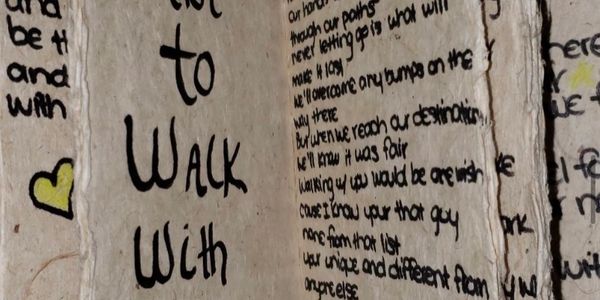 and
be th
and
with
to
WALK
With
our hands
through our paths
never letting go is what will
make it last
we'll overcome any bumps on the
way there
But when we reach our destination
we'll know it was fair
walking w/ you would be are wish
cause I know your that guy
none from that list
your unique and different from
anyone else
here
we f